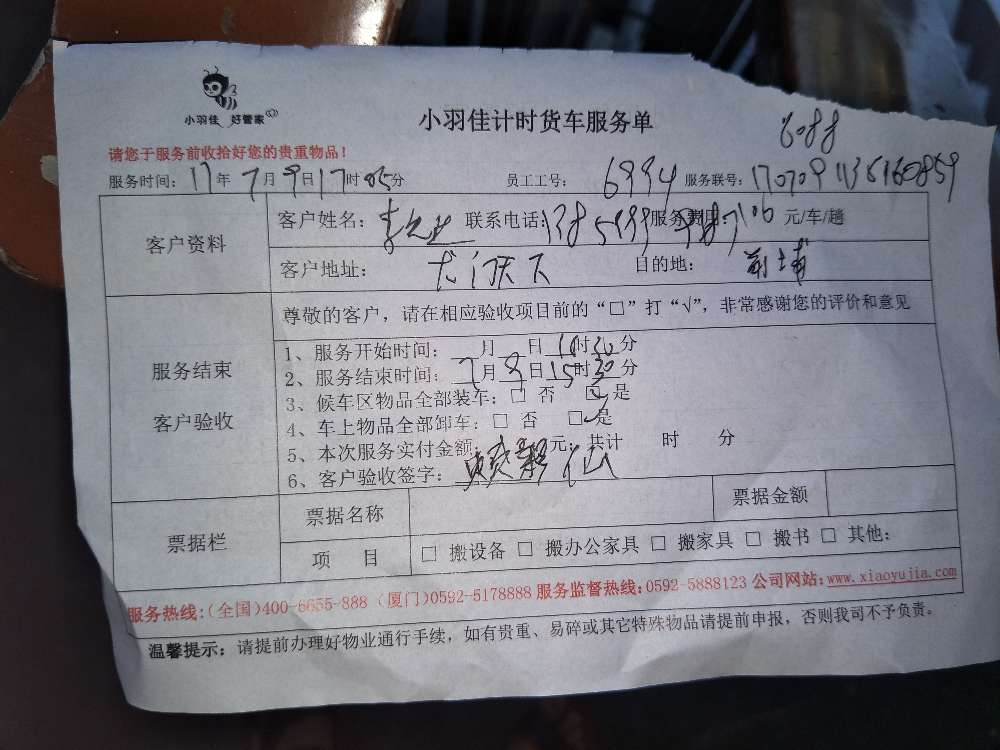 小羽佳 好管家
小羽佳计时货车服务单
6088
请您于服务前收拾好您的贵重物品！
服务时间：17年7月9日17时05分 员工工号：6994 服务联号：1707091136160859
客户资料
客户姓名：李 联系电话：1385999 服务费用：106 元/车/趟
客户地址：龙门天下 目的地：前埔
尊敬的客户，请在相应验收项目前的“□”打“√”，非常感谢您的评价和意见
服务结束
客户验收
1、服务开始时间：月 日 时 分
2、服务结束时间：7月9日15时30分
3、候车区物品全部装车：□ 否 ☑ 是
4、车上物品全部卸车：□ 否 ☑ 是
5、本次服务实付金额： 元；共计 时 分
6、客户验收签字：
票据栏
票据名称 票据金额
项 目 □ 搬设备 □ 搬办公家具 □ 搬家具 □ 搬书 □ 其他：
服务热线：(全国)400-6655-888 (厦门)0592-5178888 服务监督热线：0592-5888123 公司网站：www.xiaoyujia.com
温馨提示：请提前办理好物业通行手续，如有贵重、易碎或其它特殊物品请提前申报，否则我司不予负责。